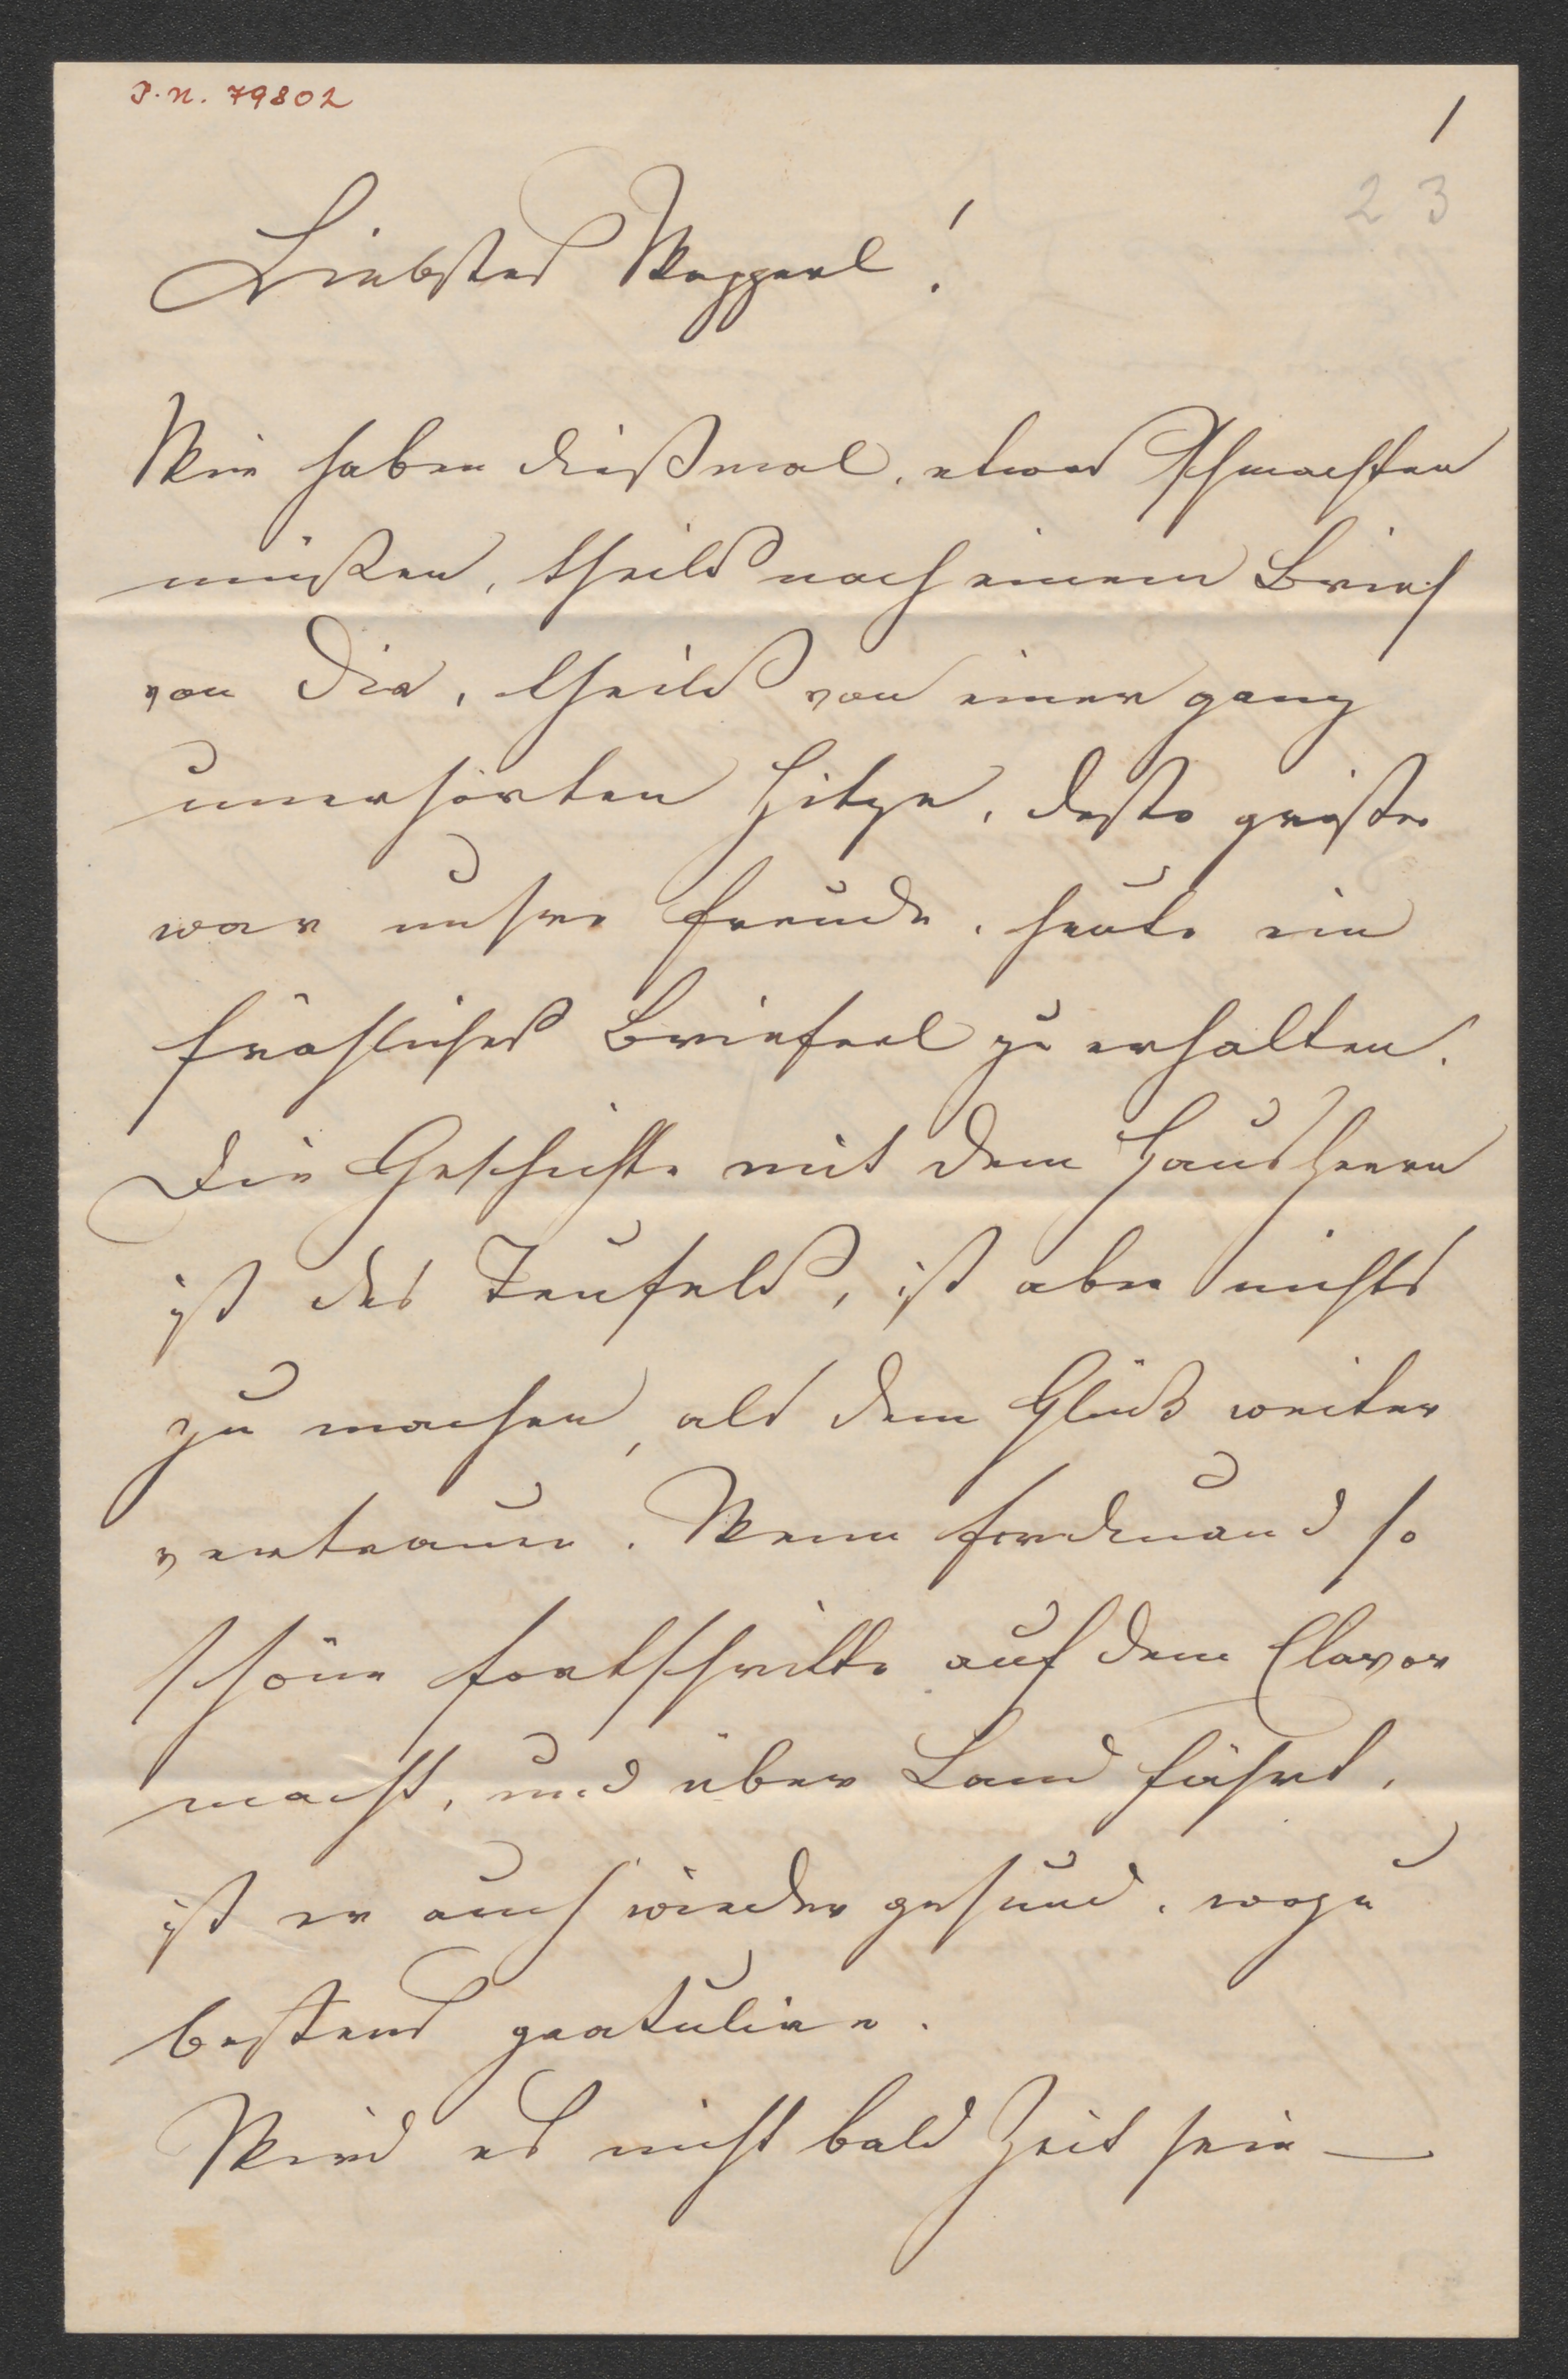 J. N. 79802
1
23
Liebstes Wepperl!
Wir haben dießmal, etwas Schmachten
müßen, theils nach einem Brief
von Dir, theils von einer ganz
unerhörten Hitze, desto größer
war unsere Freude, heute ein
fröhliches Brieferl zu erhalten.
Die Geschichte mit dem Hausherrn
ist des Teufels, ist aber nichts
zu machen, als dem Glück weiter
vertrauen. Wenn Ferdinand so
schöne Fortschritte auf dem Clavor
macht, und über Land fährt,
ist er auch wieder gesund, wozu
bestens gratulire.
Wird es nicht bald Zeit sein —